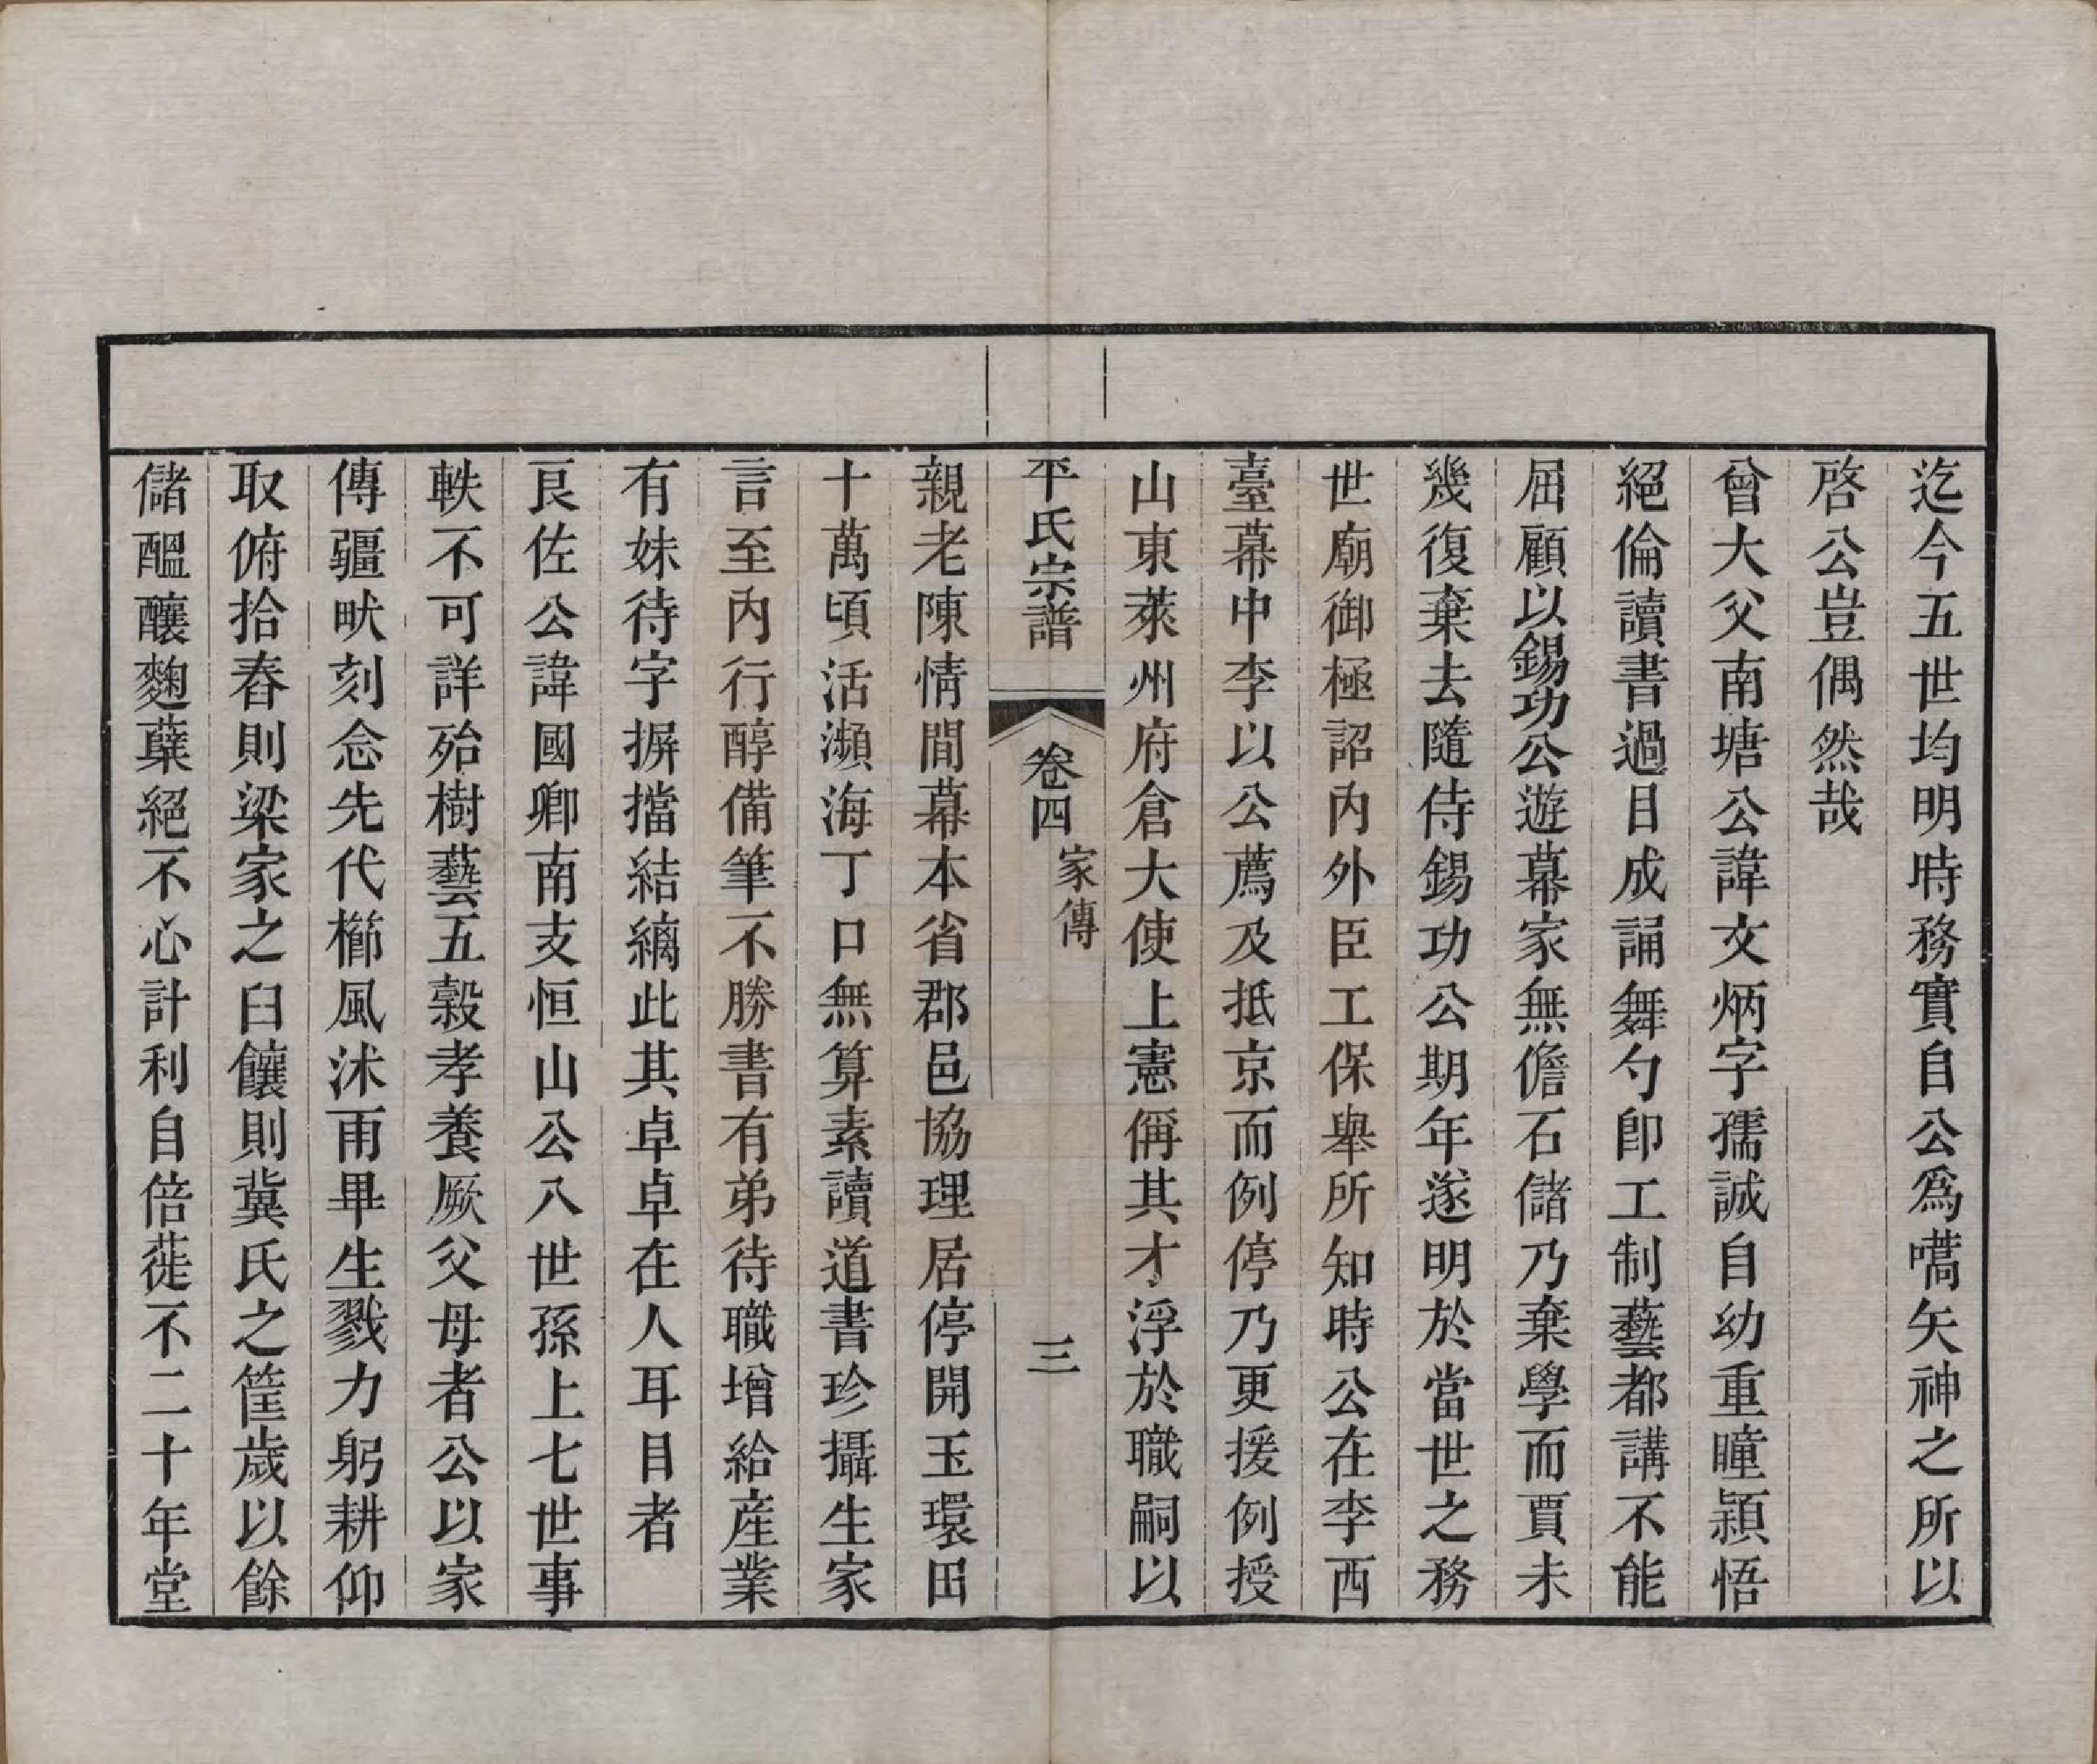 迄今五世均明時務實自公爲嚆矢神之所以
啓公豈偶然哉
曾大父南塘公諱文炳字孺誠自幼重瞳穎悟
絕倫讀書過目成誦舞勺卽工制藝都講不能
屈顧以錫功公遊幕家無儋石儲乃棄學而賈未
幾復棄去隨侍錫功公期年遂明於當世之務
世廟御極詔內外臣工保舉所知時公在李西
臺幕中李以公薦及抵京而例停乃更援例授
山東萊州府倉大使上憲偁其才浮於職嗣以
平氏宗譜 卷四 家傳 三
親老陳情閒幕本省郡邑協理居停開玉環田
十萬頃活瀕海丁口無算素讀道書珍攝生家
言至內行醇備筆不勝書有弟待職增給産業
有妹待字摒擋結縭此其卓卓在人耳目者
艮佐公諱國卿南支恒山公八世孫上七世事
軼不可詳殆樹藝五穀孝養厥父母者公以家
傳疆畎刻念先代櫛風沐雨畢生戮力躬耕仰
取俯拾舂則梁家之臼饟則冀氏之筐歲以餘
儲醞釀麴蘖絕不心計利自倍蓰不二十年堂